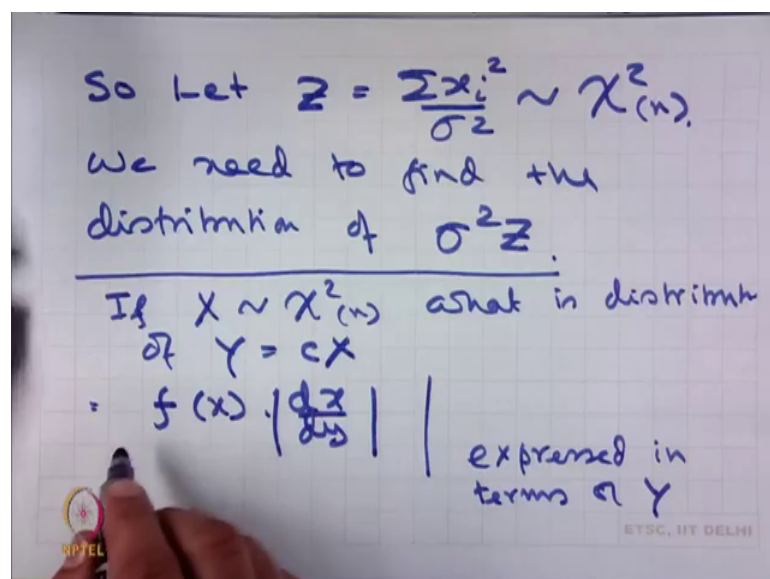 So Let Z = Σxi²/σ² ~ χ²(n).
We need to find the
distribution of σ²Z.
If X ~ χ²(n) what is distribut
of Y = cX
= f(x) . |dx/dy| |
expressed in
terms of Y
NPTEL
ETSC, IIT DELHI